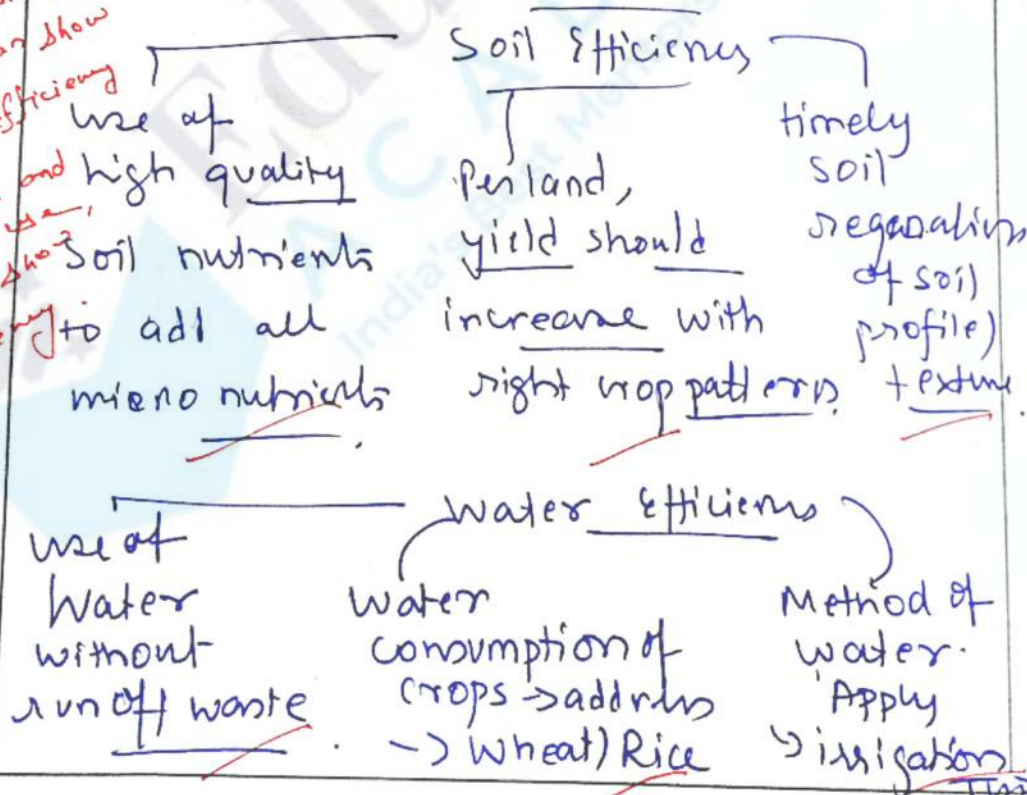 show
efficiency
and
use,
Soil Efficiency
use of
high quality
soil nutrients
to add all
micro nutrients
Per land,
yield should
increase with
right crop patterns
timely
soil
of soil
profile)
texture.
Water Efficiency
use of
Water
without
runoff waste.
Water
consumption of
crops → address
→ Wheat) Rice
Method of
water.
Apply
↳ irrigation
Edu
ACA
India's Best Mentors